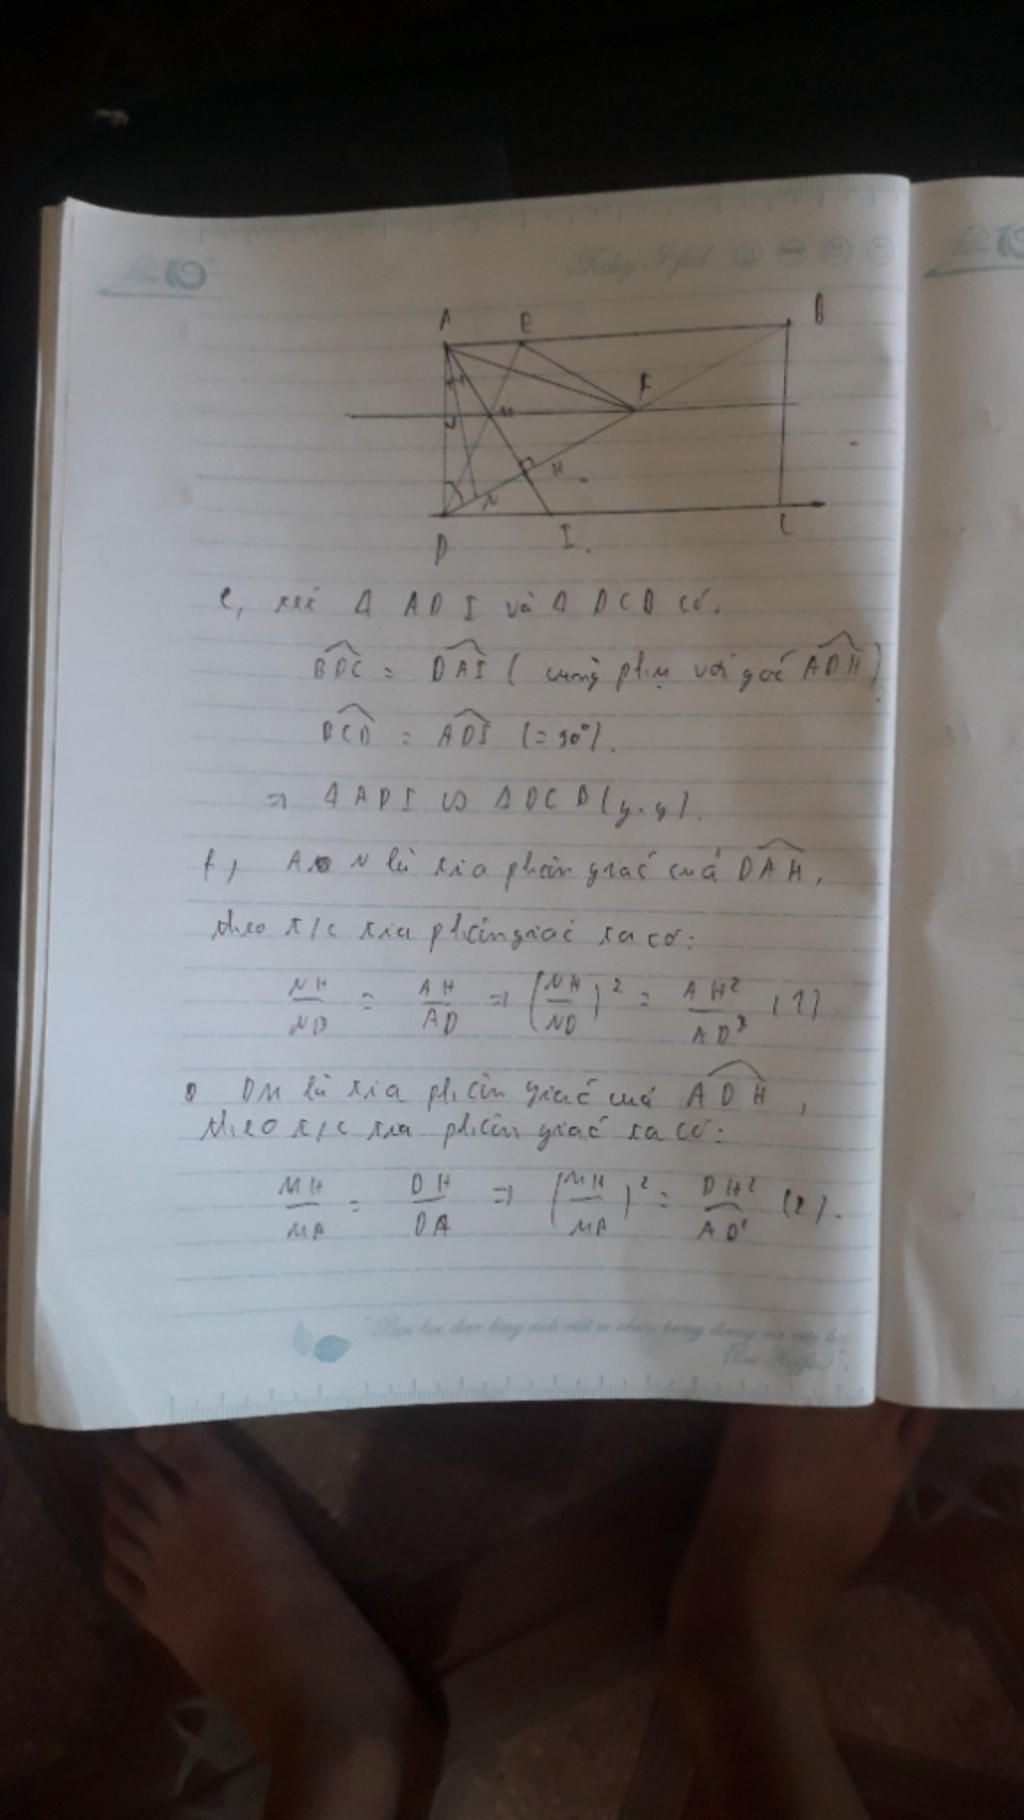 Today I feel
A E B
F
M
H
N
D I C
e, xét Δ ADI và Δ DCB có.
BDC = DAI ( cùng phụ với góc ADH )
BCD = ADI (= 90°).
=> Δ ADI ∽ Δ DCB (g.g).
f, AN là tia phân giác của DAH,
theo t/c tia phân giác ta có:
NH/ND = AH/AD => (NH/ND)² = AH²/AD² (1)
DM là tia phân giác của ADH,
theo t/c tia phân giác ta có:
MH/MA = DH/DA => (MH/MA)² = DH²/AD² (2).